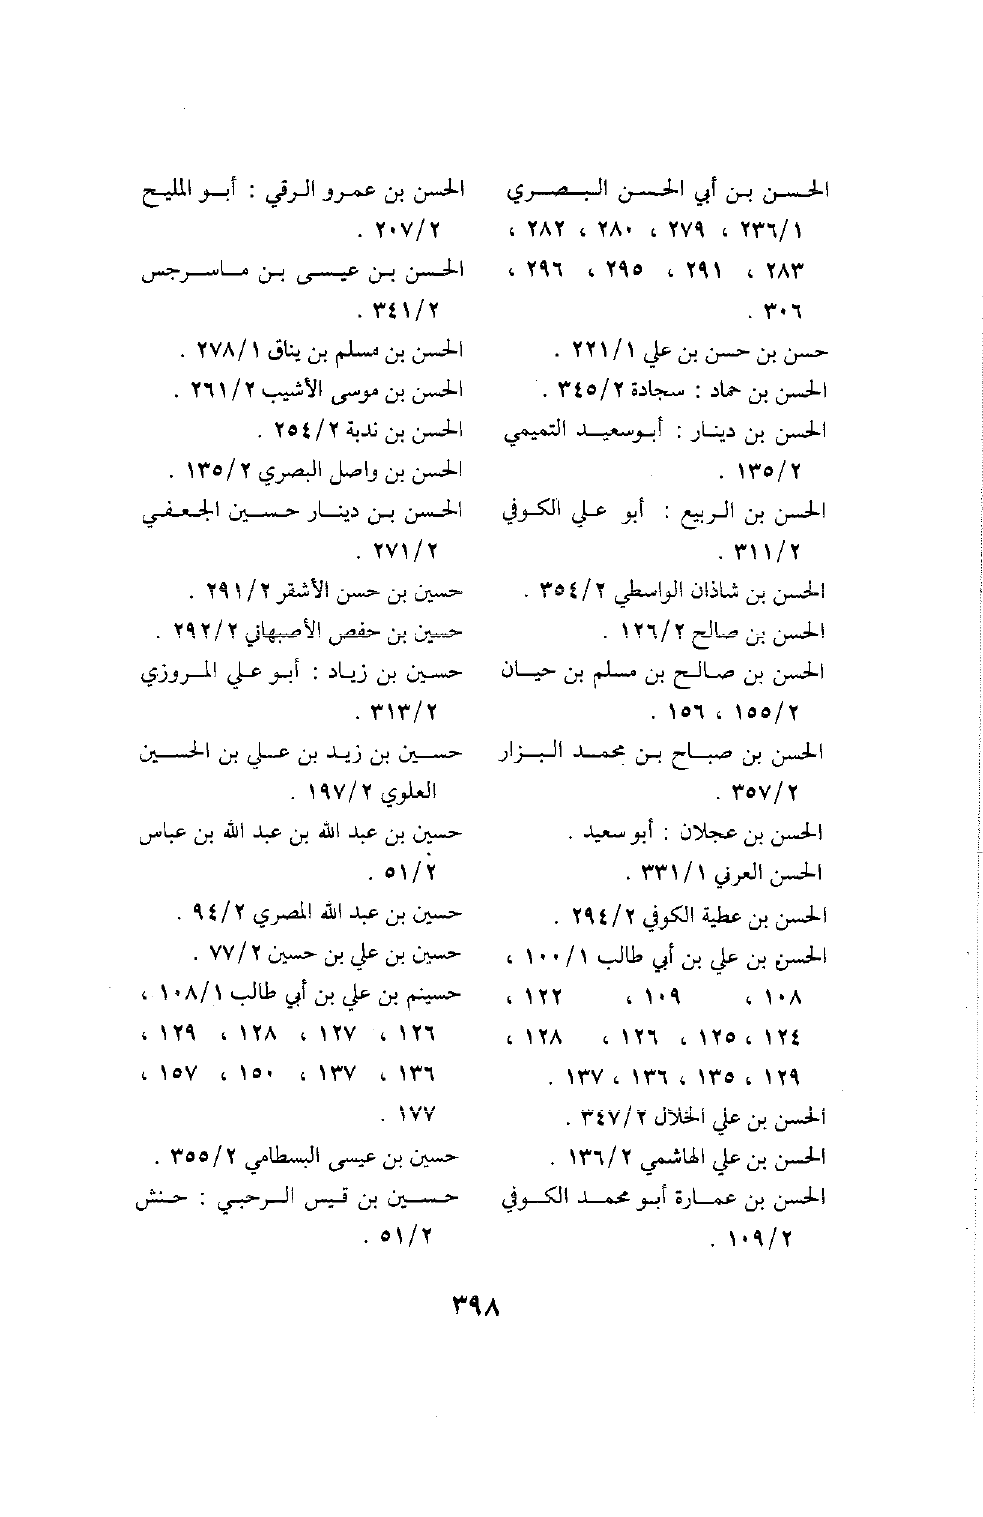 الحسن بن أبي الحسن البصري
٢٣٦/١ ، ٢٧٩ ، ٢٨٠ ، ٢٨٢ ،
٢٨٣ ، ٢٩١ ، ٢٩٥ ، ٢٩٦ ،
٣٠٦ .
حسن بن حسن بن علي ٢٢١/١ .
الحسن بن حماد : سجادة ٣٤٥/٢ .
الحسن بن دينار : أبوسعيد التميمي
١٣٥/٢ .
الحسن بن الربيع : أبو علي الكوفي
٣١١/٢ .
الحسن بن شاذان الواسطي ٣٥٤/٢ .
الحسن بن صالح ١٢٦/٢ .
الحسن بن صالح بن مسلم بن حيان
١٥٥/٢ ، ١٥٦ .
الحسن بن صباح بن محمد البزار
٣٥٧/٢ .
الحسن بن عجلان : أبو سعيد .
الحسن العرني ٣٣١/١ .
الحسن بن عطية الكوفي ٢٩٤/٢ .
الحسن بن علي بن أبي طالب ١٠٠/١ ،
١٠٨ ، ١٠٩ ، ١٢٢ ،
١٢٤ ، ١٢٥ ، ١٢٦ ، ١٢٨ ،
١٢٩ ، ١٣٥ ، ١٣٦ ، ١٣٧ .
الحسن بن علي الخلال ٣٤٧/٢ .
الحسن بن علي الهاشمي ١٣٦/٢ .
الحسن بن عمارة أبو محمد الكوفي
١٠٩/٢ .
الحسن بن عمرو الرقي : أبو المليح
٢٠٧/٢ .
الحسن بن عيسى بن ماسرجس
٣٤١/٢ .
الحسن بن مسلم بن يناق ٢٧٨/١ .
الحسن بن موسى الأشيب ٢٦١/٢ .
الحسن بن ندبة ٢٥٤/٢ .
الحسن بن واصل البصري ١٣٥/٢ .
الحسن بن دينار حسين الجعفي
٢٧١/٢ .
حسين بن حسن الأشقر ٢٩١/٢ .
حسين بن حفص الأصبهاني ٢٩٢/٢ .
حسين بن زياد : أبو علي المروزي
٣١٣/٢ .
حسين بن زيد بن علي بن الحسين
العلوي ١٩٧/٢ .
حسين بن عبد الله بن عبد الله بن عباس
٥١/٢ .
حسين بن عبد الله المصري ٩٤/٢ .
حسين بن علي بن حسين ٧٧/٢ .
حسينم بن علي بن أبي طالب ١٠٨/١ ،
١٢٦ ، ١٢٧ ، ١٢٨ ، ١٢٩ ،
١٣٦ ، ١٣٧ ، ١٥٠ ، ١٥٧ ،
١٧٧ .
حسين بن عيسى البسطامي ٣٥٥/٢ .
حسين بن قيس الرحبي : حنش
٥١/٢ .
٣٩٨